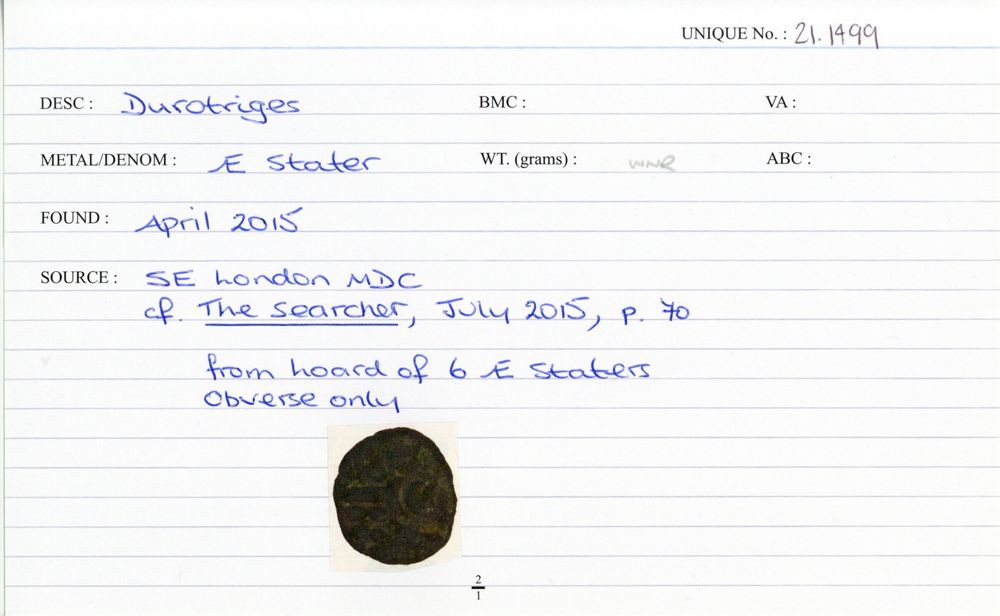 UNIQUE No. : 21.1499
DESC : Durotriges BMC : VA :
METAL/DENOM : Æ Stater WT. (grams) : WNR ABC :
FOUND : April 2015
SOURCE : SE London MDC
cf. The Searcher, July 2015, p. 70
from hoard of 6 Æ Staters
Obverse only
2
1